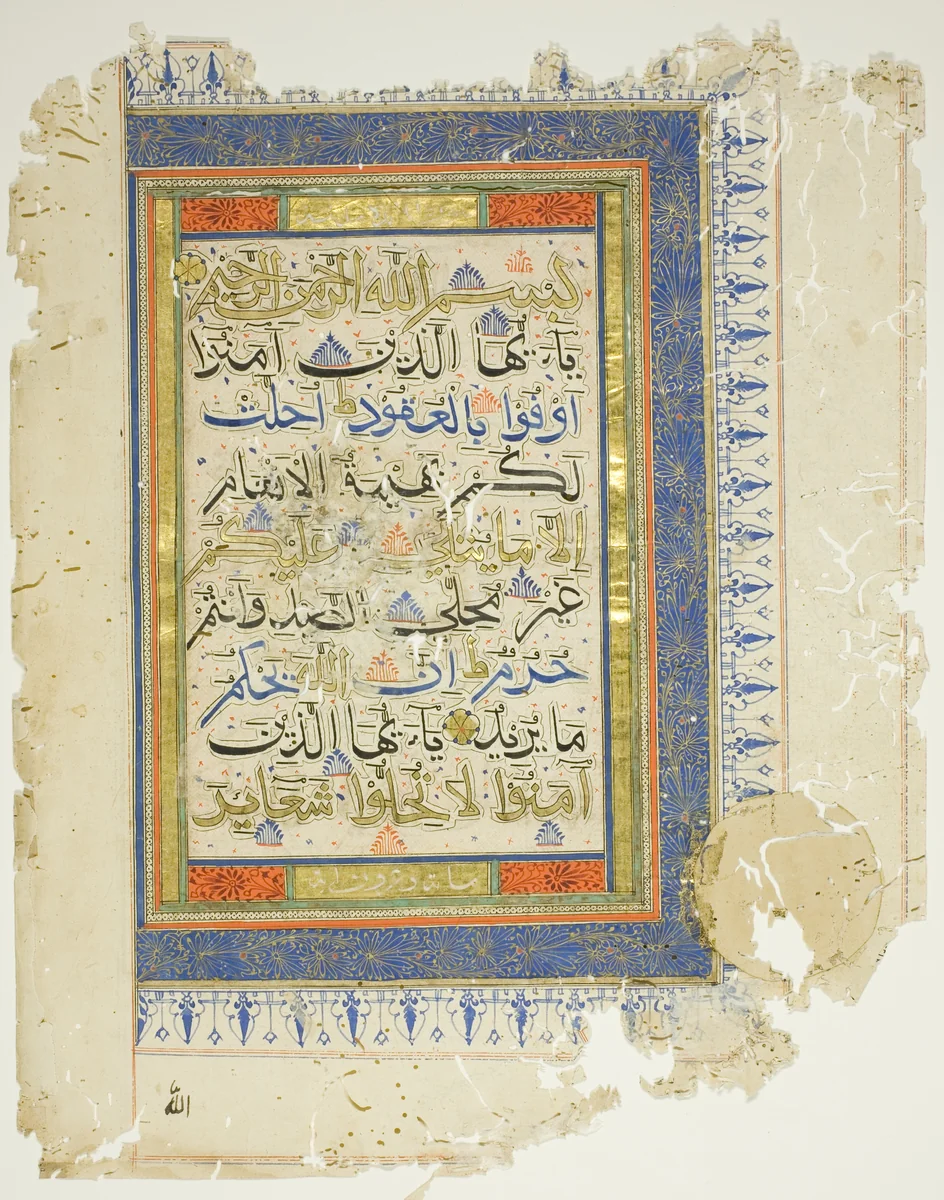 بِسْمِ اللّٰهِ الرَّحْمٰنِ الرَّحِيْمِ
يَآءَيُّهَا الَّذِيْنَ آمَنُوْا
اَوْفُوْا بِالْعُقُوْدِ ط اُحِلَّتْ
لَكُمْ بَهِيْمَةُ الْاَنْعَامِ
اِلَّا مَا يُتْلٰى عَلَيْكُمْ
غَيْرَ مُحِلِّى الصَّيْدِ وَاَنْتُمْ
حُرُمٌ ط اِنَّ اللّٰهَ يَحْكُمُ
مَا يُرِيْدُ يَآءَيُّهَا الَّذِيْنَ
آمَنُوْا لَا تُحِلُّوْا شَعَايِرَ
مائة وعشرون اية
اللّٰه